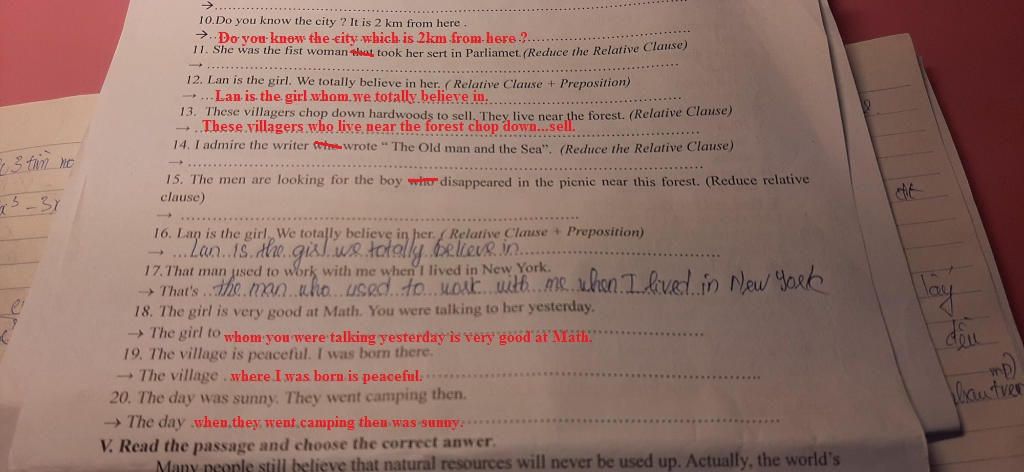 →
10.Do you know the city ? It is 2 km from here .
→ Do you know the city which is 2km from here ?
11. She was the fist woman that took her sert in Parliamet.(Reduce the Relative Clause)
→
12. Lan is the girl. We totally believe in her. ( Relative Clause + Preposition)
→ Lan is the girl whom we totally believe in.
13. These villagers chop down hardwoods to sell. They live near the forest. (Relative Clause)
→ These villagers who live near the forest chop down...sell.
14. I admire the writer who wrote “ The Old man and the Sea”. (Reduce the Relative Clause)
→
15. The men are looking for the boy who disappeared in the picnic near this forest. (Reduce relative
clause)
→
16. Lan is the girl. We totally believe in her. ( Relative Clause + Preposition)
→ Lan is the girl we totally believe in
17.That man used to work with me when I lived in New York.
→ That's the man who used to work with me when I lived in New York
18. The girl is very good at Math. You were talking to her yesterday.
→ The girl to whom you were talking yesterday is very good at Math.
19. The village is peaceful. I was born there.
→ The village where I was born is peaceful.
20. The day was sunny. They went camping then.
→ The day when they went camping then was sunny.
V. Read the passage and choose the correct anwer.
Many people still believe that natural resources will never be used up. Actually, the world's
3 tìm
x³ - 3x
lấy
đều